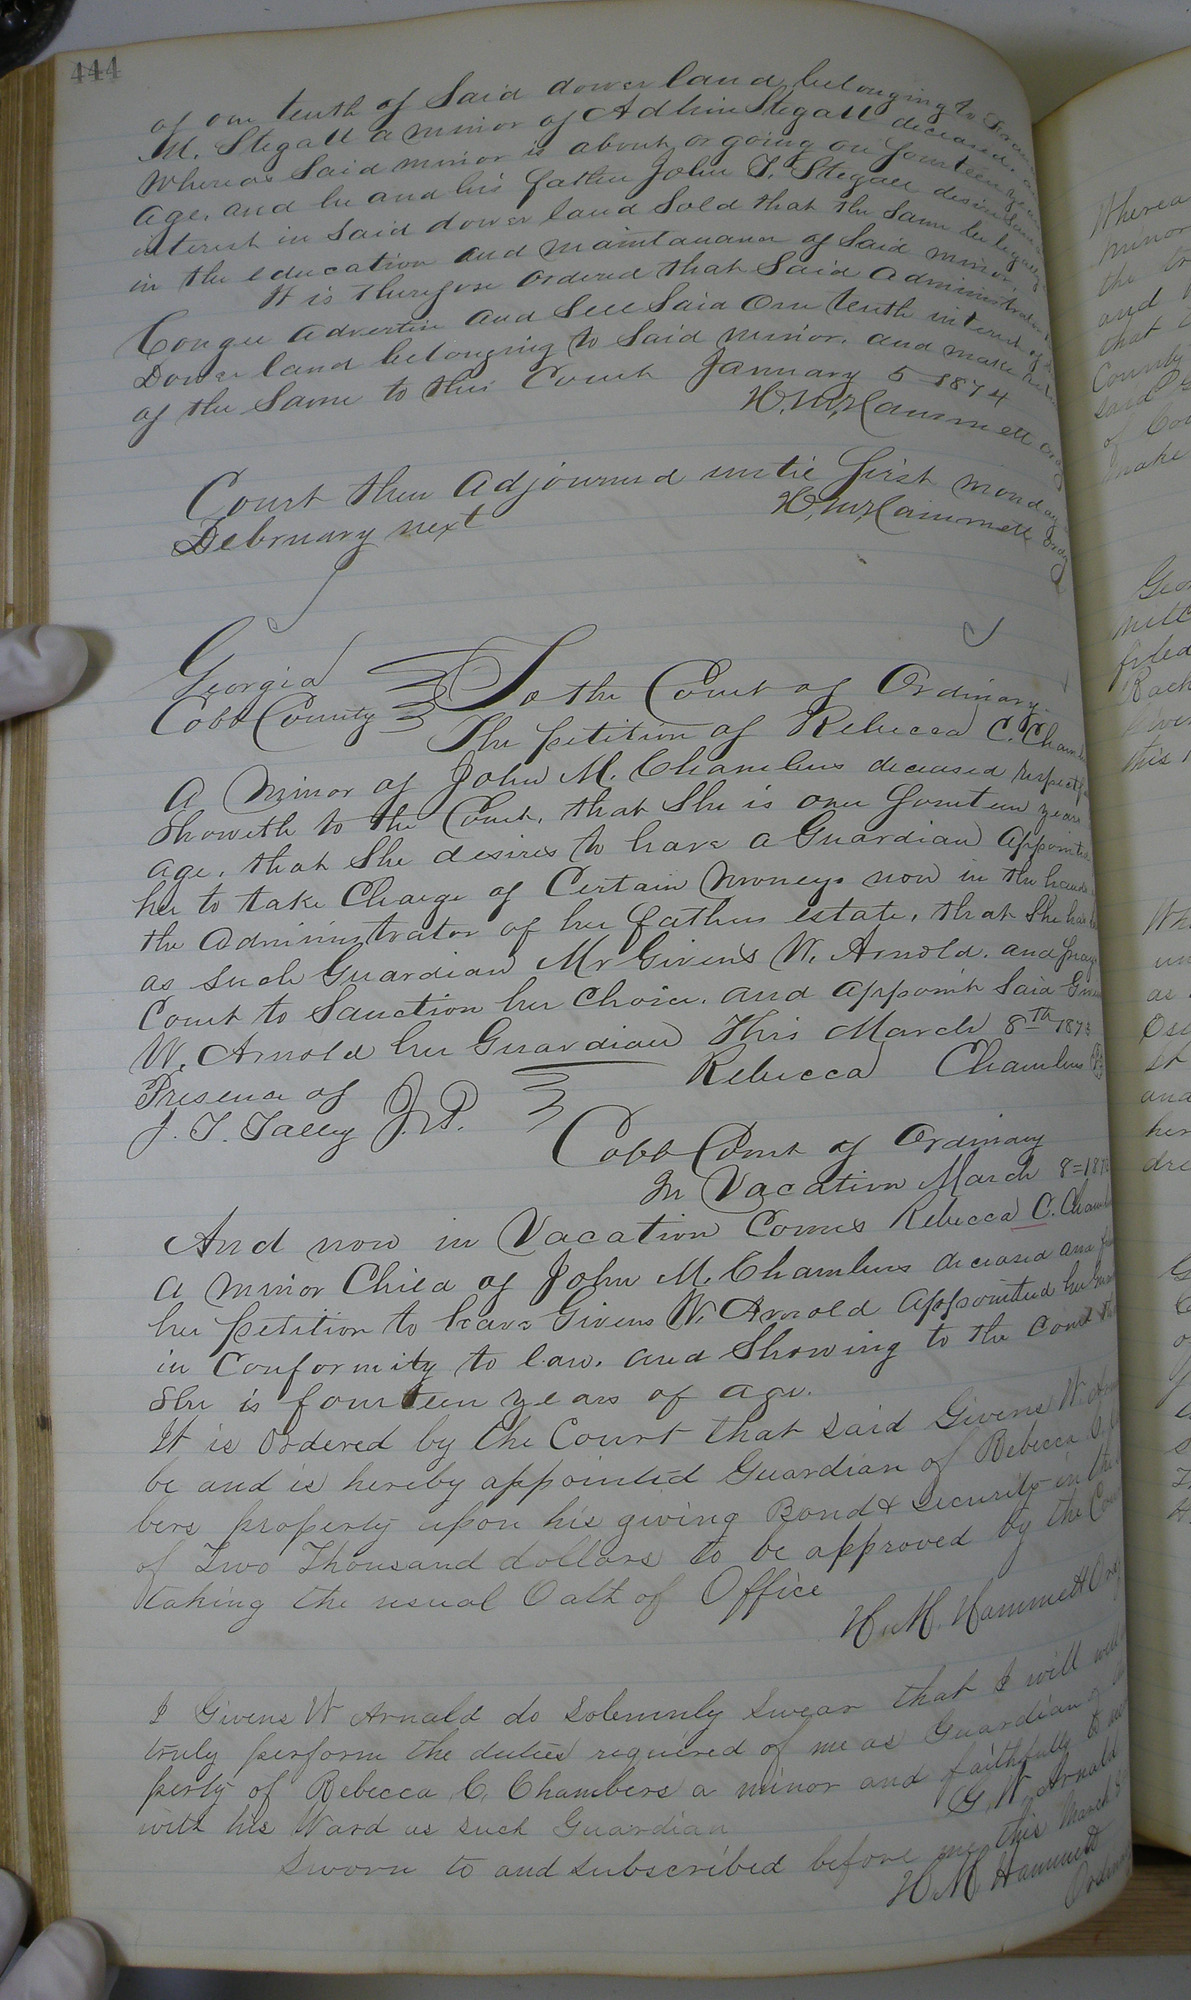 444
of one tenth of Said dower land belonging to
M. Stegall a minor of Adline Stegall deceased
Whereas Said minor is about or going on fourteen years
age. and he and his father John T. Stegall desires
interest in Said dower land Sold that the Same be legally
in the education and maintanance of Said minor,
It is therefore ordered that Said administrator
Conger advertise and Sell Said One tenth interest of
Dower land belonging to Said minor. and make
of the Same to this Court January 5 1874
H. M. Hammett Ordy
Court then adjourned until first monday
February next
H. M. Hammett Ordy
Georgia
Cobb County
To the Court of Ordinary.
The petition of Rebecca C. Cham
A Minor of John M. Chambers deceased respectf
Showeth to the Court, that She is over fourteen years
age, that She desires to have a Guardian Appointed
her to take Charge of Certain Moneys now in the hands
the Administrator of her fathers estate, that She has
as such Guardian Mr Givens W. Arnold. and prays
Court to Sanction her Choice. and Appoint Said Givens
W. Arnold her Guardian This March 8th 1873
Rebecca Chambers
Presence of
J. T. Talley J.P.
Cobb Court of Ordinary
In Vacation March 8=187
And now in Vacation Comes Rebecca C. Chamb
a minor Child of John M. Chambers deceased and
her petition to have Givens W. Arnold Appointed her
in Conformity to law. and Showing to the Court that
She is fourteen years of age.
It is ordered by the Court that said Givens W. Arn
be and is hereby appointed Guardian of Rebecca C.
bers property upon his giving Bond & Security in the
of Two Thousand dollars to be approved by the Court
taking the usual Oath of Office
H. M. Hammett Ordy
I Givens W Arnald do Solemnly Swear that I will well
truly perform the duties required of me as Guardian of
perty of Rebecca C. Chambers a minor and faithfully to
with his Ward as such Guardian
G. W. Arnald
Sworn to and subscribed before me this March 8
H. M Hammett
Ordinary
Wherea
minor
the
and
that
County
said
of
make
Geo
filed
Rach
this
as
and
her